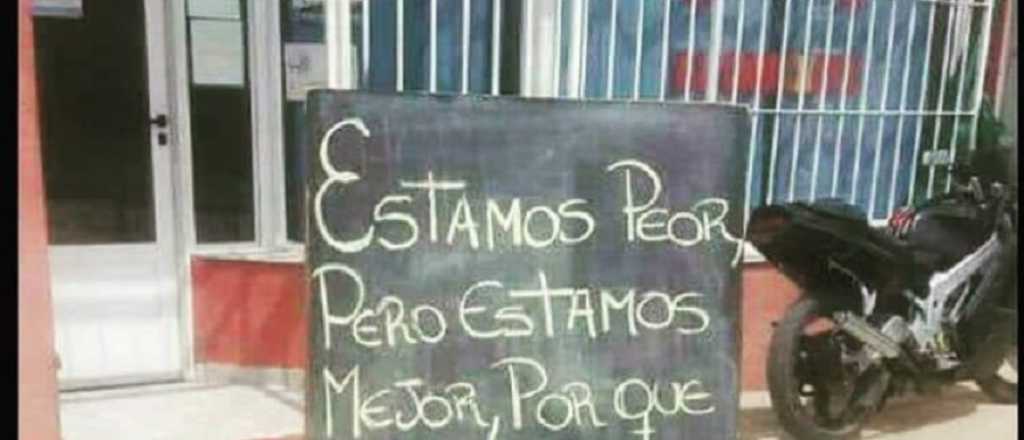 ESTAMOS PEOR,
PERO ESTAMOS
MEJOR, POR QUE